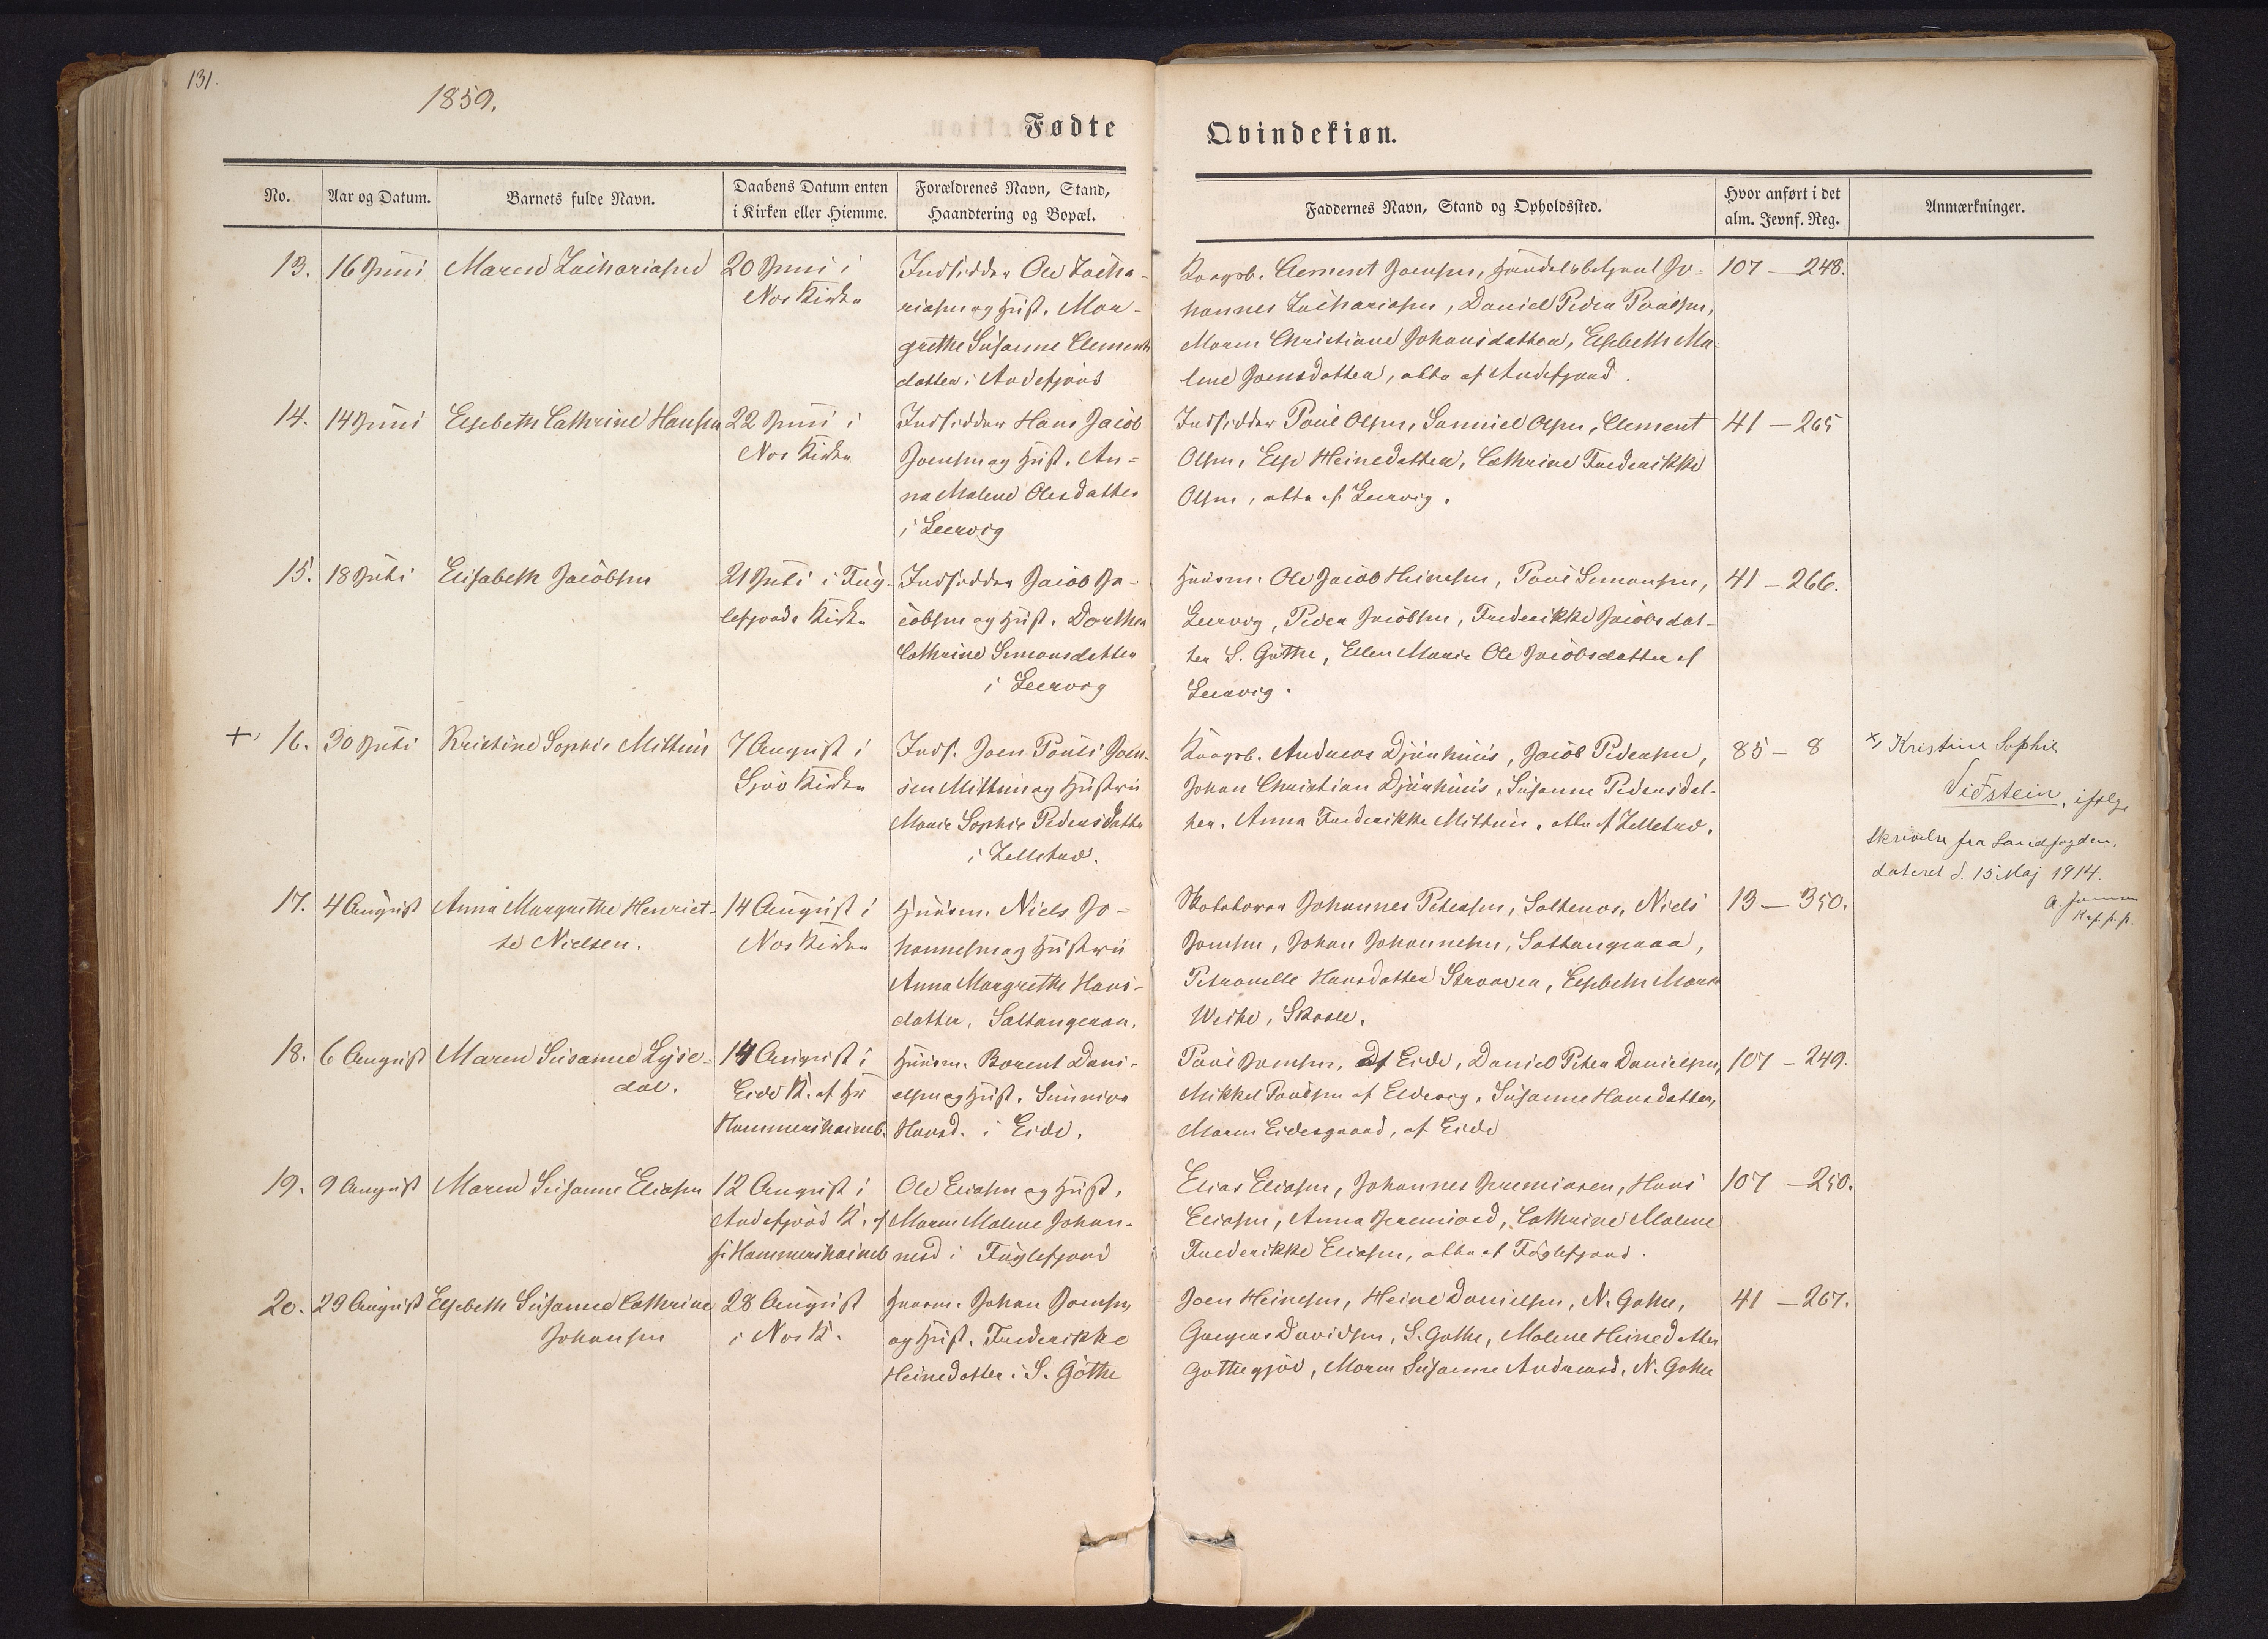 131.
1859.
Fødte
Qvindekiøn.
No.
Aar og Datum.
Barnets fulde Navn.
Daabens Datum enten
i Kirken eller Hiemme.
Forældrenes Navn, Stand,
Haandtering og Bopæl.
Faddernes Navn, Stand og Opholdssted.
Hvor anført i det
alm. Jevnf. Reg.
Anmærkninger.
13.
16 Juni
Maren Zachariasen
20 Juni i
Nes Kirke
Indsidder Ole Zacha-
riasen og Hust. Mar-
grethe Susanne Clements
datter i Andefjord
Kongsb. Clement Joensen, Handelsbetjent Jo-
hannes Zachariasen, Daniel Peder Poulsen,
Maren Christiane Johansdatter, Elsbeth Ma-
lene Joensdatter, alle af Andefjord.
107 – 248.
14.
14 Juni
Elsebeth Cathrine Hansen
22 Juni i
Nes Kirke
Indsidder Hans Jacob
Joensen og Hust. An-
na Malene Olesdatter
i Leervig
Indsidder Poul Olsen, Samuel Olsen, Clement
Olsen, Else Heinedatter, Cathrine Frederikke
Olsen, alle af Leervig.
41 – 265
15.
18 Juli
Elisabeth Jacobsen
21 Juli i Fug-
lefjords Kirke
Indsidder Jacob Ja-
cobsen og Hust. Dorthea
Cathrine Simonsdatter
i Leervig
Huusm. Ole Jacob Heinesen, Poul Simonsen,
Leervig, Peder Jacobsen, Frederikke Jacobsdat-
ter S. Gøthe, Ellen Marie Ole Jacobsdatter af
Leervig.
41 – 266.
+ 16.
30 Juli
Kristine Sophie Mittun
7 August i
Sjov Kirke
Inds. Joen Pouli Joen-
sen Mittun og Hustru
Marie Sophie Pedersdatter
i Zelletræ.
Kongsb. Andreas Djurhuus, Jacob Pedersen,
Johan Christian Djurhuus, Susanne Pedersdat-
ter, Anna Frederikke Mittun, alle af Zelletræ.
85 – 8
x) Kristine Sophie
Viðstein, ifølge
Skrivelse fra Landfogden,
dateret d. 15 Maj 1914.
17.
4 August
Anna Margrethe Henriet-
te Nielsen.
14 August i
Nes Kirke
Huusm. Niels Jo-
hannesen og Hustru
Anna Margrethe Hans-
datter, Saltangeraa.
Johannes Petersen, Saltenes, Niels
Joensen, Johan Johannesen, Saltangeraa,
Petronelle Hansdatter Strover, Elsbeth Marie
Weihe, Skaale.
13 – 350.
18.
6 August
Maren Susanne Lyse-
dal.
14 August i
Eide K. af Hr
Hammershaimb.
Huusm. Barent Dani-
elsen og Hust. Sunniva
Hansd. i Eide.
Poul Joensen, af Eide, Daniel Peter Danielsen,
Mikkel Poulsen af Eldevig, Susanne Hansdatter,
Maren Eidesgaard, af Eide
107 – 249.
19.
9 August
Maren Susanne Eliasen
12 August i
Andefjord K. af
Hr Hammershaimb
Ole Eliasen og Hust.
Maren Malene Johan-
nesd i Fuglefjord
Elias Eliasen, Johannes Jeremiasen, Hans
Eliasen, Anna Jeremiasd, Cathrine Malene
Frederikke Eliasen, alle af Fuglefjord.
107 – 250.
20.
29 August
Elsebeth Susanne Cathrine
Johansen
28 August
i Nes K.
Huusm. Johan Joensen
og Hust. Frederikke
Heinedatter i S. Gøthe
Joen Heinesen, Heine Danielsen, N. Gøthe,
Davidsen, S. Gøthe, Malene Heinedatter
Gøthegjov, Maren Susanne Andreasd, N. Gøthe
41 – 267.